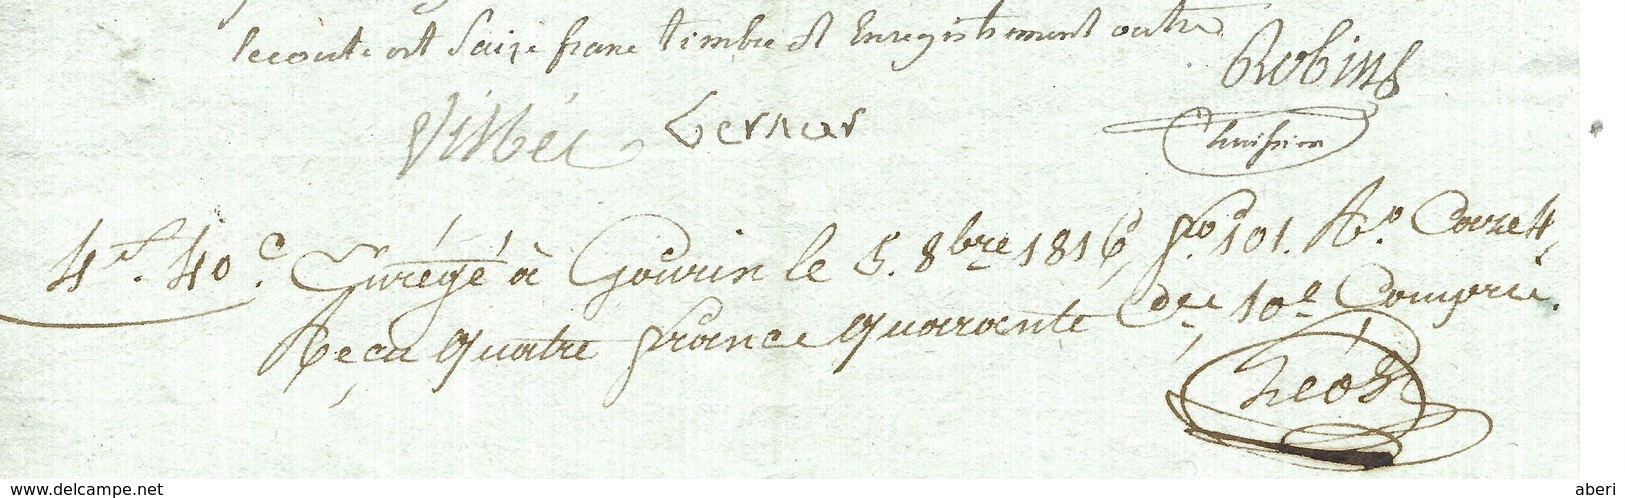 le coute est Saize franc timbre et Enregistrement outre
Robins
Vibbéc Lernar
huissier
4f. 40c. Enrégé à Gourin le 5. 8bre 1816 fo 101. Ro Case 4,
Reçu quatre francs quarante Cmes 10e Compris.
www.delcampe.net aberi